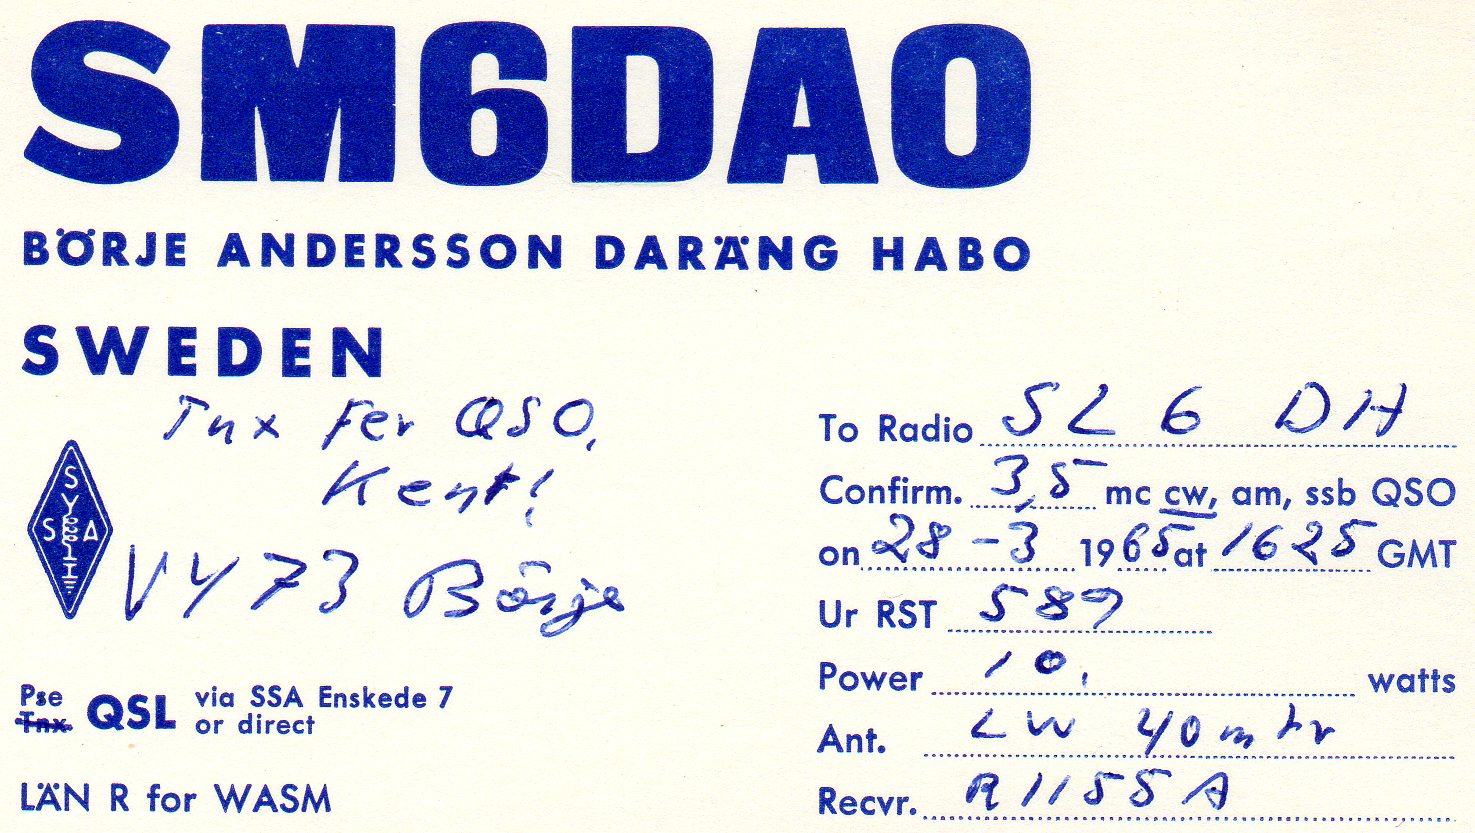 SM6DAO
BÖRJE ANDERSSON DARÄNG HABO
SWEDEN
Tnx Fer QSO,
Kent!
SSA
VY 73 Börje
Pse
Tnx.
QSL via SSA Enskede 7
or direct
LÄN R for WASM
To Radio SL6DH
Confirm. 3,5 mc cw, am, ssb QSO
on 28-3 1965 at 1625 GMT
Ur RST 589
Power 10. watts
Ant. LW 40 mtr
Recvr. R1155A